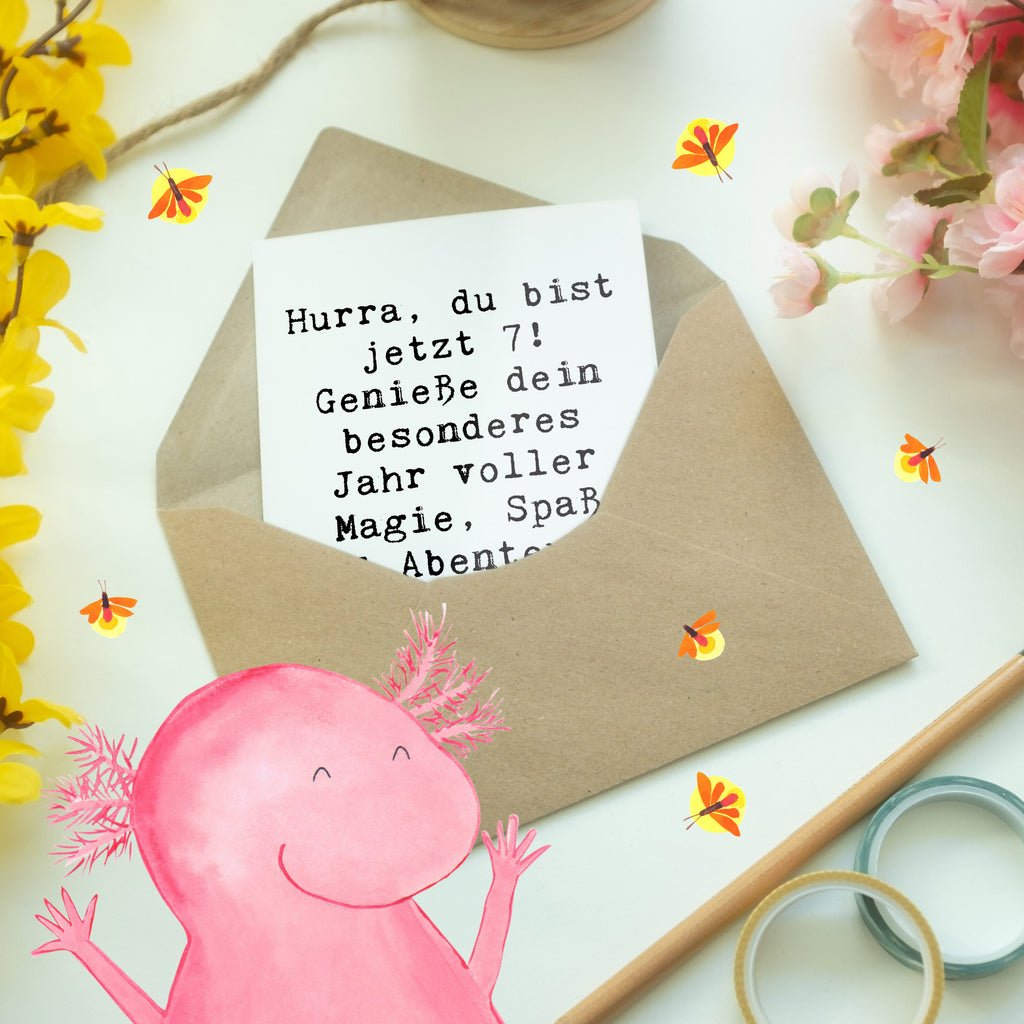 Hurra, du bist
jetzt 7!
Genieße dein
besonderes
Jahr voller
Magie, Spaß